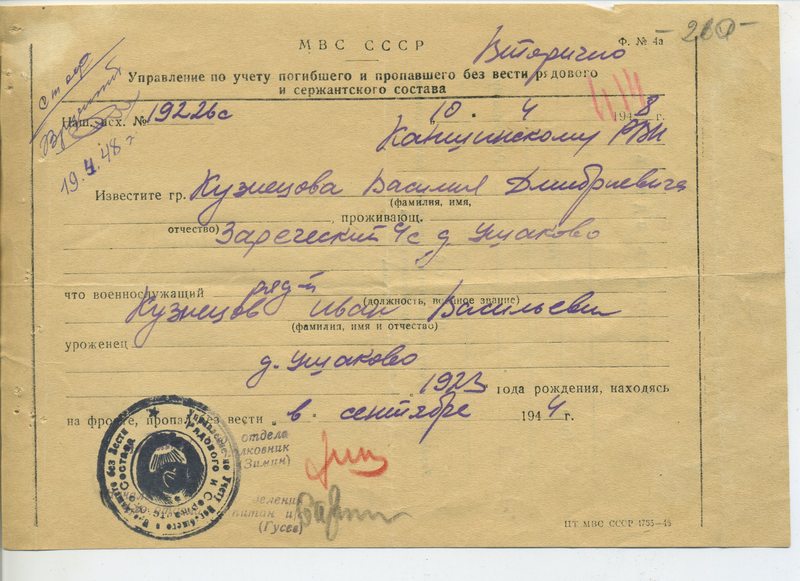 - 210 -
МВС СССР
Вторично
Ф. № 4а
Управление по учету погибшего и пропавшего без вести рядового
и сержантского состава
Наш. исх. № 19226с
10 . 4 1948 г.
19.4.48 г
РВК
Известите гр. Кузнецова Василия Дмитриевича
(фамилия, имя,
отчество)
проживающ.
Зареческий с/с д. Ушаково
что военнослужащий ряд-й
(должность, военное звание)
Кузнецов Иван Васильевич
(фамилия, имя и отчество)
уроженец
д. Ушаково
1923 года рождения, находясь
на фронте, пропал без вести в сентябре 1944 г.
отдела
(Зимин)
(Гусев)
ЦТ МВС СССР 4755-48